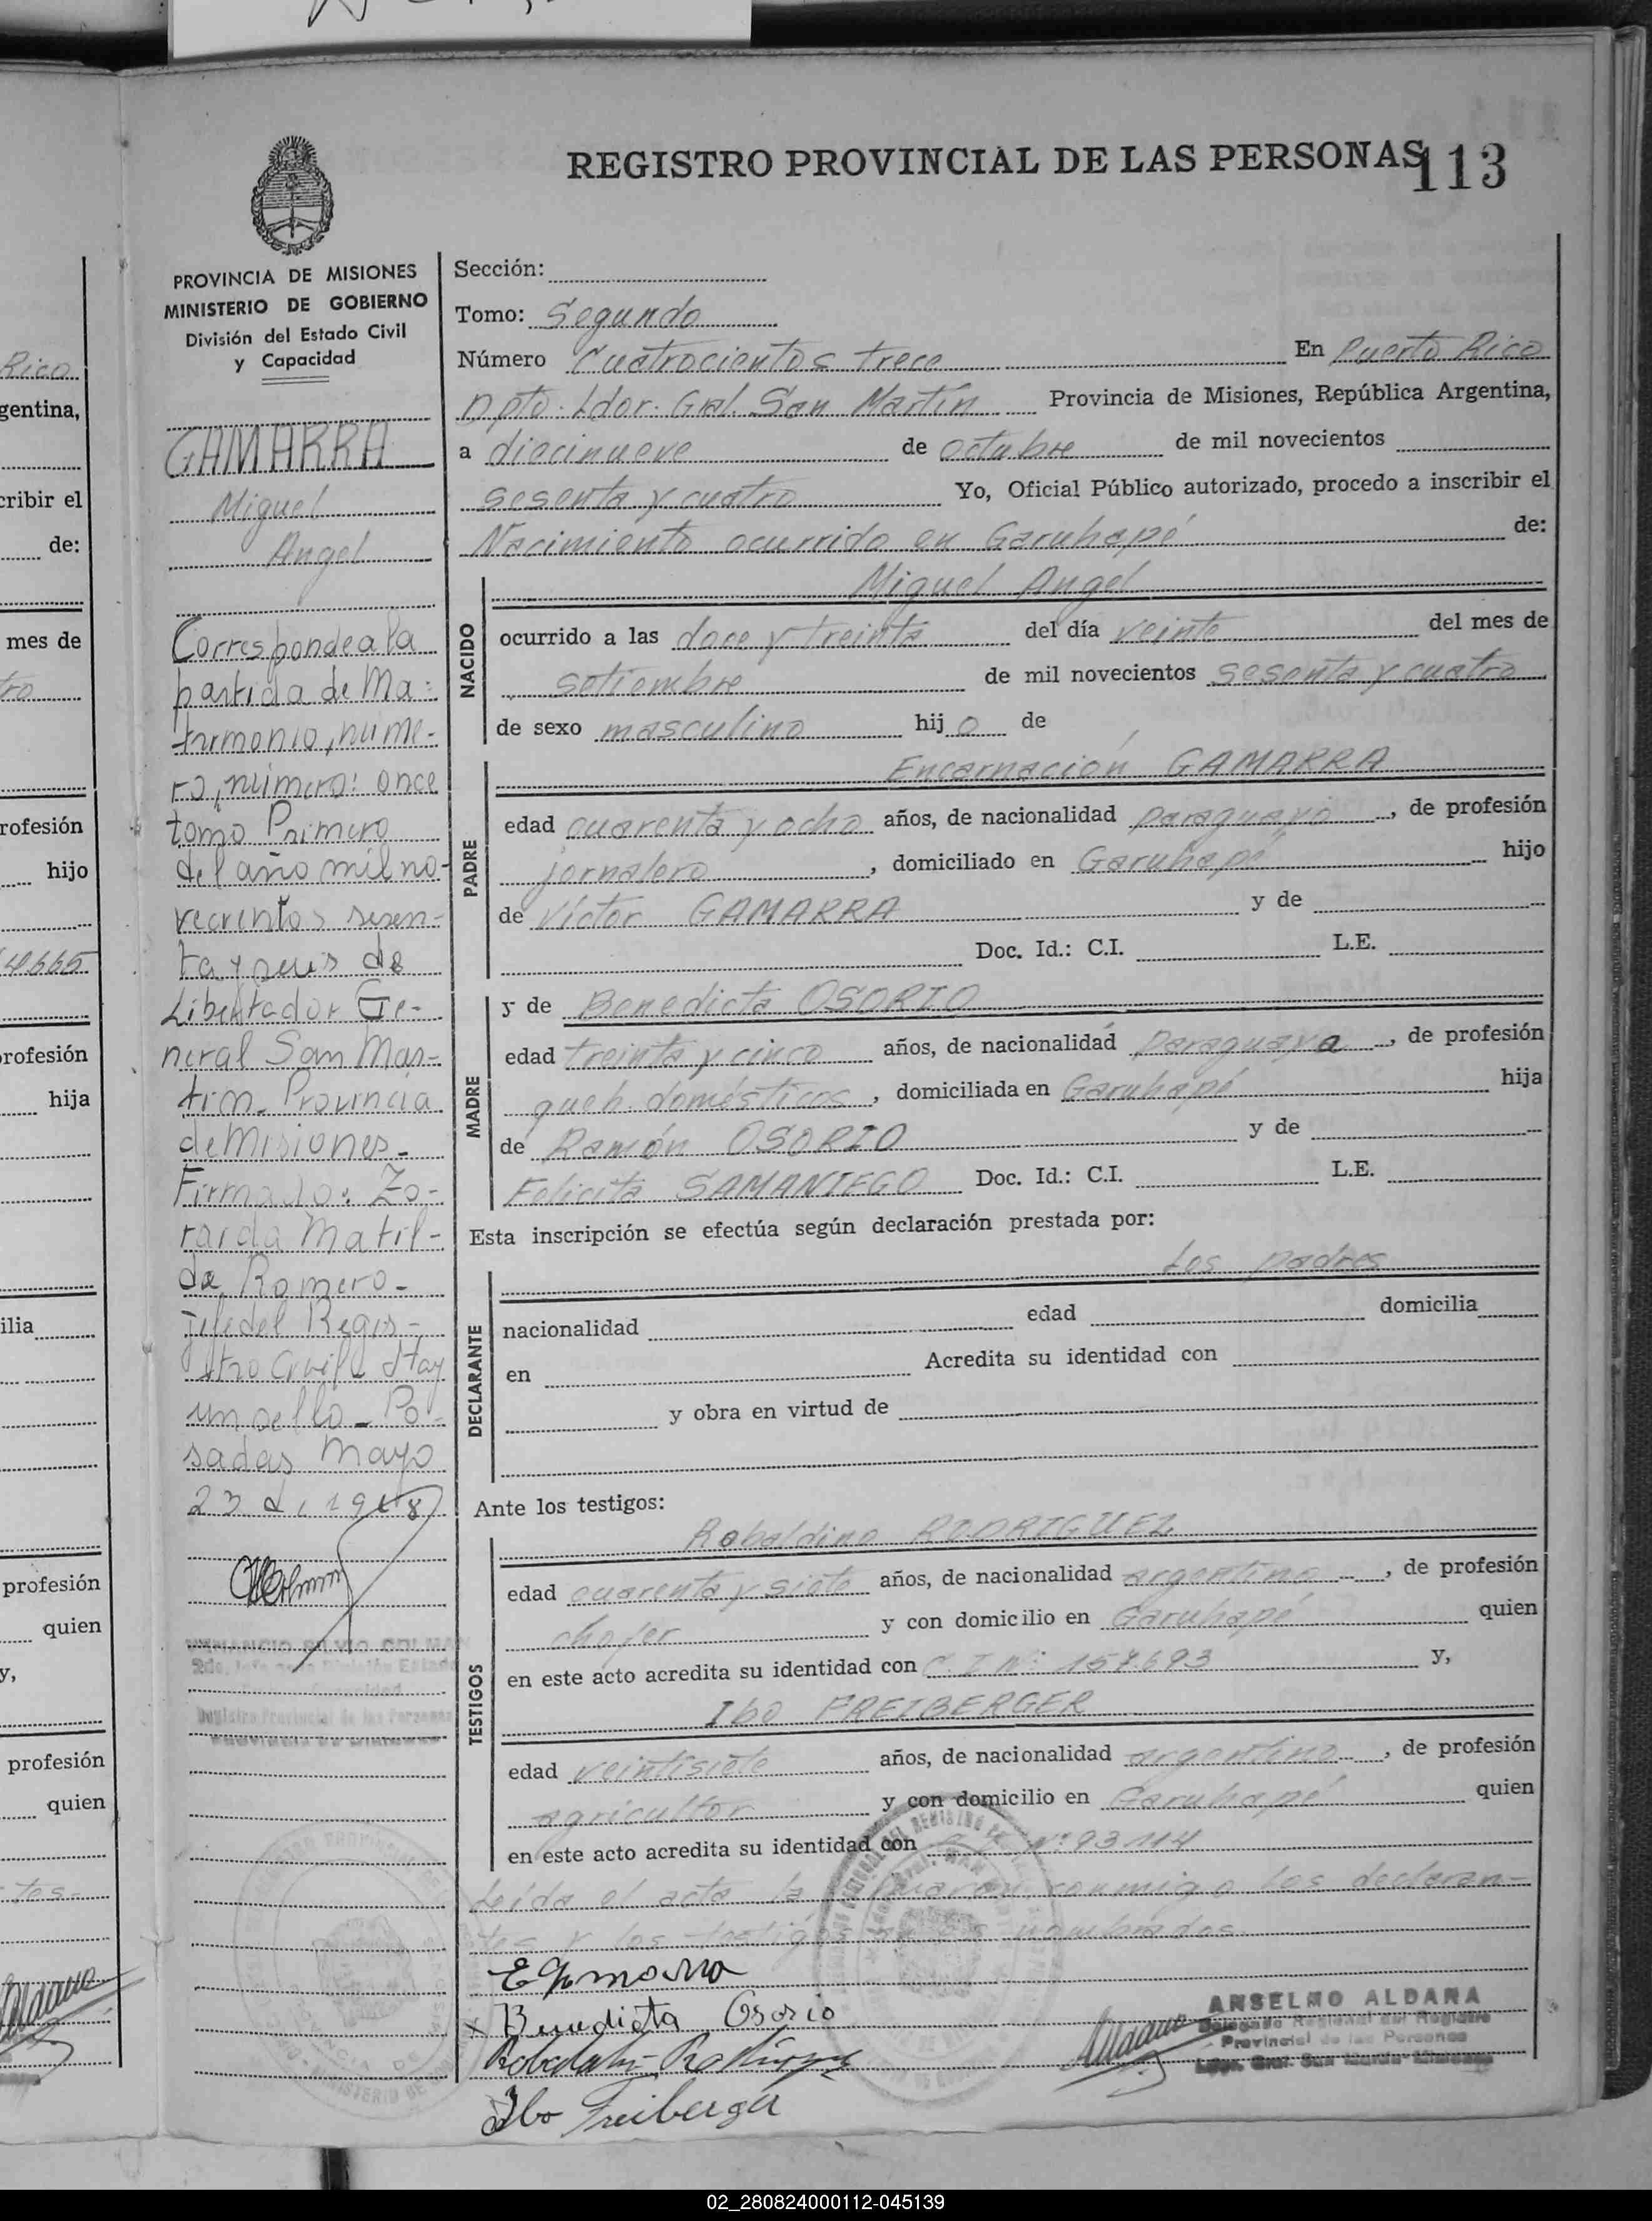 REGISTRO PROVINCIAL DE LAS PERSONAS
113
PROVINCIA DE MISIONES
MINISTERIO DE GOBIERNO
División del Estado Civil
y Capacidad
GAMARRA
Miguel
Angel
Corresponde a la
partida de Ma-
trimonio, nume-
ro, número: once
tomo Primero
del año mil no-
vecientos sesen-
ta y seis de
Libertador Ge-
neral San Mar-
tin. Provincia
de Misiones.
Firmado: Zo-
raida Matil-
de Romero-
jefe del Regis-
tro Civil. Hay
un sello - Po-
sadas Mayo
23 de 1968
Sección:
Tomo: Segundo
Número Cuatrocientos trece En Puerto Rico
Dpto. Ldor. Gral. San Martín Provincia de Misiones, República Argentina,
a diecinueve de octubre de mil novecientos
sesenta y cuatro Yo, Oficial Público autorizado, procedo a inscribir el
Nacimiento ocurrido en Garuhapé de:
NACIDO
Miguel Angel
ocurrido a las doce y treinta del día veinte del mes de
setiembre de mil novecientos sesenta y cuatro
de sexo masculino hijo de
PADRE
Encarnación GAMARRA
edad cuarenta y ocho años, de nacionalidad paraguayo, de profesión
jornalero, domiciliado en Garuhapé hijo
de Víctor GAMARRA y de
Doc. Id.: C.I. L.E.
MADRE
y de Benedicta OSORIO
edad treinta y cinco años, de nacionalidad paraguaya, de profesión
queh. domésticos, domiciliada en Garuhapé hija
de Ramón OSORIO y de
Felicita SAMANIEGO Doc. Id.: C.I. L.E.
Esta inscripción se efectúa según declaración prestada por:
Los padres
DECLARANTE
nacionalidad edad domicilia
en Acredita su identidad con
y obra en virtud de
Ante los testigos:
TESTIGOS
Robaldino RODRIGUEZ
edad cuarenta y siete años, de nacionalidad argentino, de profesión
chofer y con domicilio en Garuhapé quien
en este acto acredita su identidad con C.I. Nº: 157.693 y,
Ibo FREIBERGER
edad veintisiete años, de nacionalidad argentino, de profesión
agricultor y con domicilio en Garuhapé quien
en este acto acredita su identidad con Nº: 93114
Leída el acta la conmigo los declaran-
tes y los nombrados.
E Gamarra
Benedicta Osorio
Ibo Freiberger
Aldana
ANSELMO ALDANA
Delegado Regional del Registro
Provincial de las Personas
Ldor. Gral. San Martín-Misiones
Rico
gentina,
cribir el
de:
mes de
tro
rofesión
hijo
4665
rofesión
hija
ilia
profesión
quien
y,
profesión
quien
tes.
Aldana
02_280824000112-045139